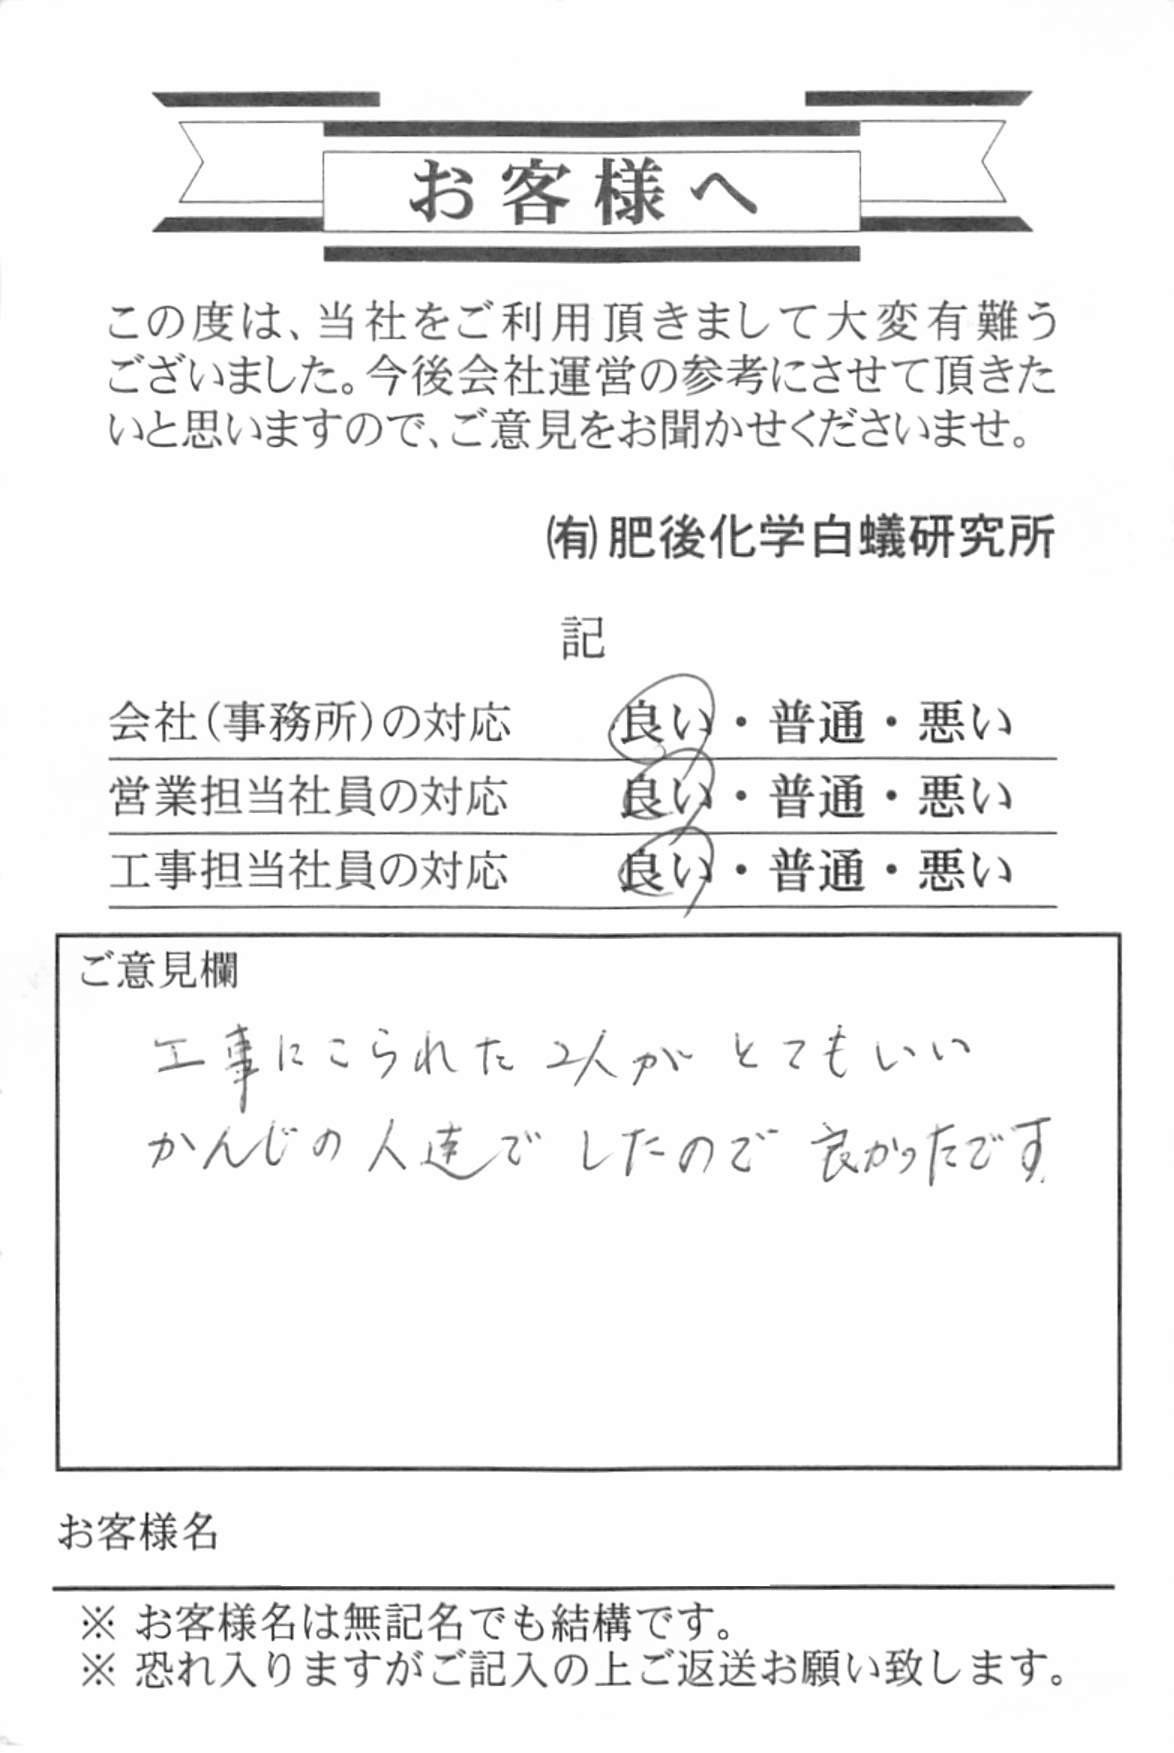 お客様へ
この度は、当社をご利用頂きまして大変有難う
ございました。今後会社運営の参考にさせて頂きた
いと思いますので、ご意見をお聞かせくださいませ。
㈲肥後化学白蟻研究所
記
会社(事務所)の対応 良い・普通・悪い
営業担当社員の対応 良い・普通・悪い
工事担当社員の対応 良い・普通・悪い
ご意見欄
工事にこられた2人がとてもいい
かんじの人達でしたので良かったです
お客様名
※ お客様名は無記名でも結構です。
※ 恐れ入りますがご記入の上ご返送お願い致します。